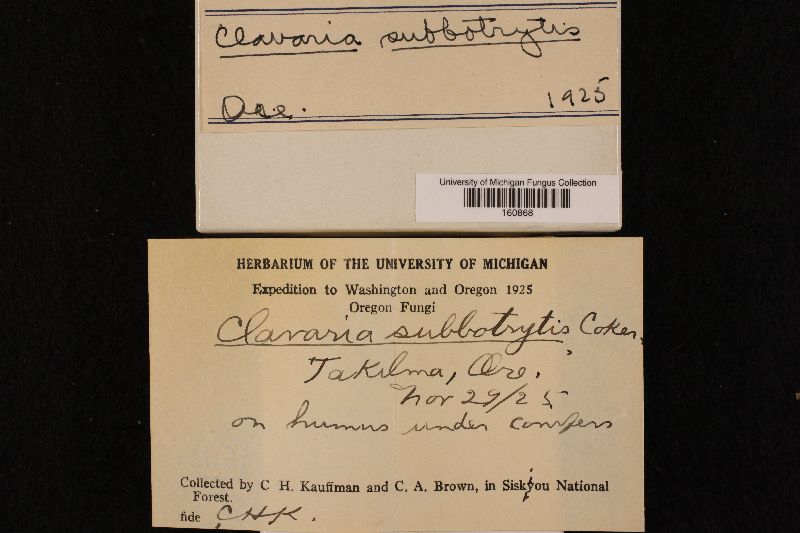 Clavaria subbotrytis
Ore. 1925
University of Michigan Fungus Collection
160868
HERBARIUM OF THE UNIVERSITY OF MICHIGAN
Expedition to Washington and Oregon 1925
Oregon Fungi
Clavaria subbotrytis Coker.
Takilma, Ore.
Nov 29/25
on humus under conifers
Collected by C. H. Kauffman and C. A. Brown, in Siskiyou National
Forest.
fide CHK.